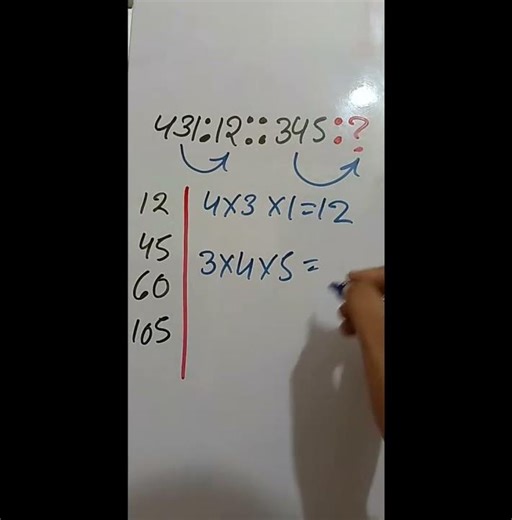 431:12::345:?
12
45
60
105
4x3x1=12
3x4x5=